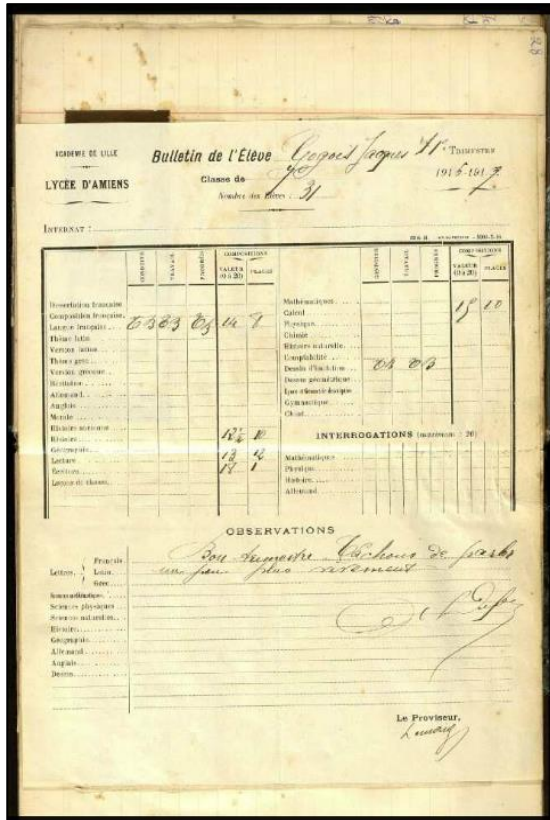 ACADÉMIE DE LILLE
LYCÉE D'AMIENS
Bulletin de l'Élève Gogois Jacques
TRIMESTRE
Classe de 7e
1916-1917
Nombre des Élèves : 31
INTERNAT :
CONDUITE TRAVAIL PROGRÈS COMPOSITIONS
VALEUR (0 à 20) PLACE
Dissertation française
Composition française
Langue française TB TB TB 14 8
Thème latin
Version latine
Thème grec
Version grecque
Récitation
Allemand
Anglais
Morale
Histoire ancienne
Histoire 12½ 10
Géographie
Lecture 13 12
Écriture 18 1
Leçons de choses
CONDUITE TRAVAIL PROGRÈS COMPOSITIONS
VALEUR (0 à 20) PLACE
Mathématiques
Calcul 15 10
Physique
Chimie
Histoire naturelle
Comptabilité
Dessin d'imitation TB TB
Dessin géométrique
Gymnastique
Chant
INTERROGATIONS (maximum : 20)
Mathématiques
Physique
Histoire
Allemand
OBSERVATIONS
Bon trimestre. Tâchons de parler
un peu plus vivement
Lettres. Français
Latin
Grec
Mathématiques
Sciences physiques
Sciences naturelles
Histoire
Géographie
Allemand
Anglais
Dessin
Le Proviseur,